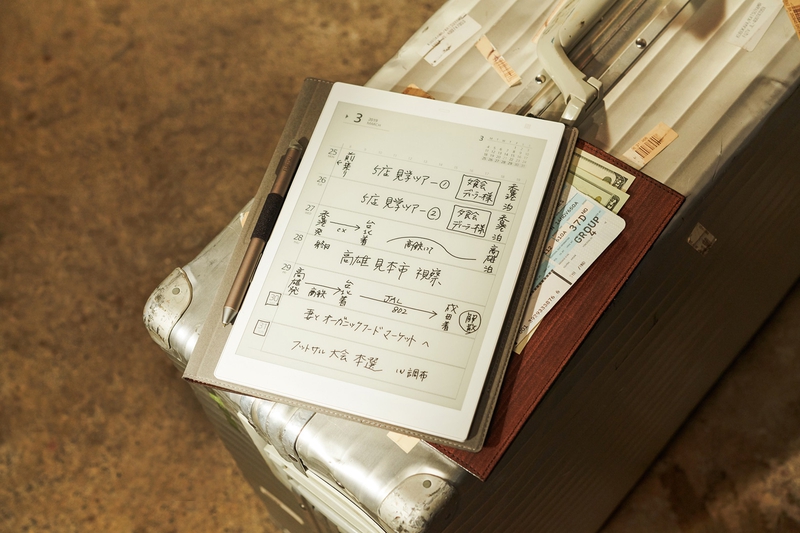 3
3
25 前乗り
5店 見学ツアー① 夕食会 ディーラー様 香港泊
26
5店 見学ツアー② 夕食会 ディーラー様 香港泊
27 香港発 CX → 台北着 高鉄にて 高雄泊
28
高雄見本市 視察
29 高雄発 高鉄 → 台北着 JAL 802 → 成田着 解散
妻とオーガニックフードマーケットへ
フットサル大会本選 IN 調布
37D
GROUP
4